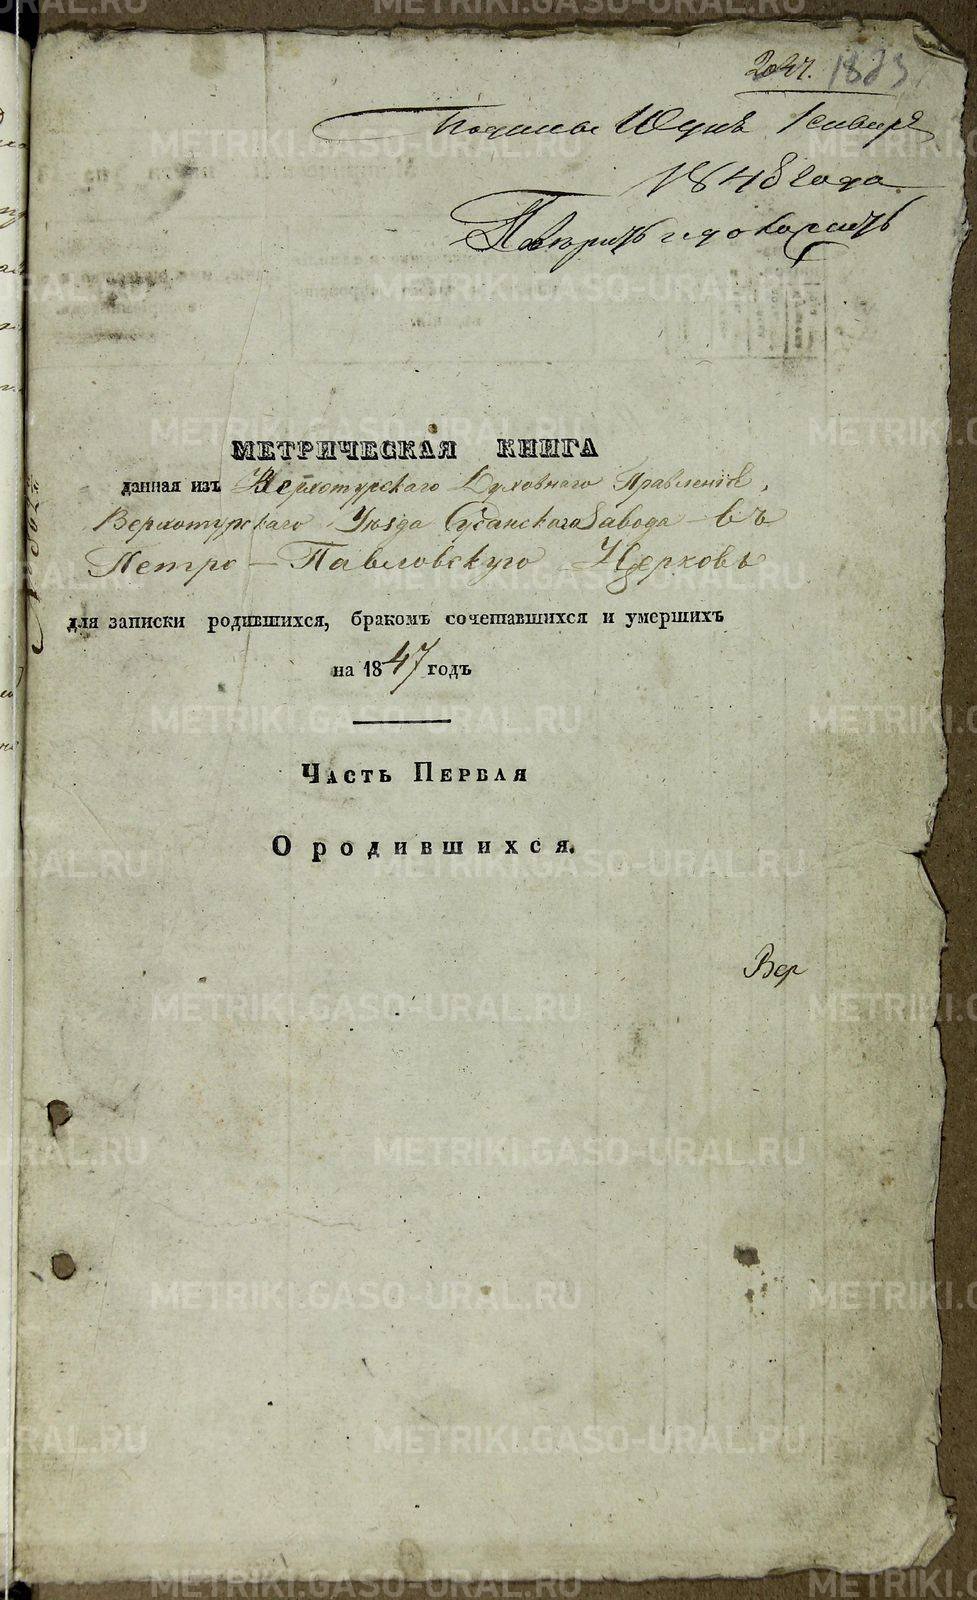 1823
1848 года
Повѣрить и доложить
МЕТРИЧЕСКАЯ КНИГА
данная изъ Верхотурскаго Духовнаго Правленія,
Верхотурскаго Уѣзда Сусанскаго Завода въ
Петро-Павловскую Церковь
для записки родившихся, бракомъ сочетавшихся и умершихъ
на 1847 годъ
Часть Первая
О родившихся.
Вер
METRIKI.GASO-URAL.RU